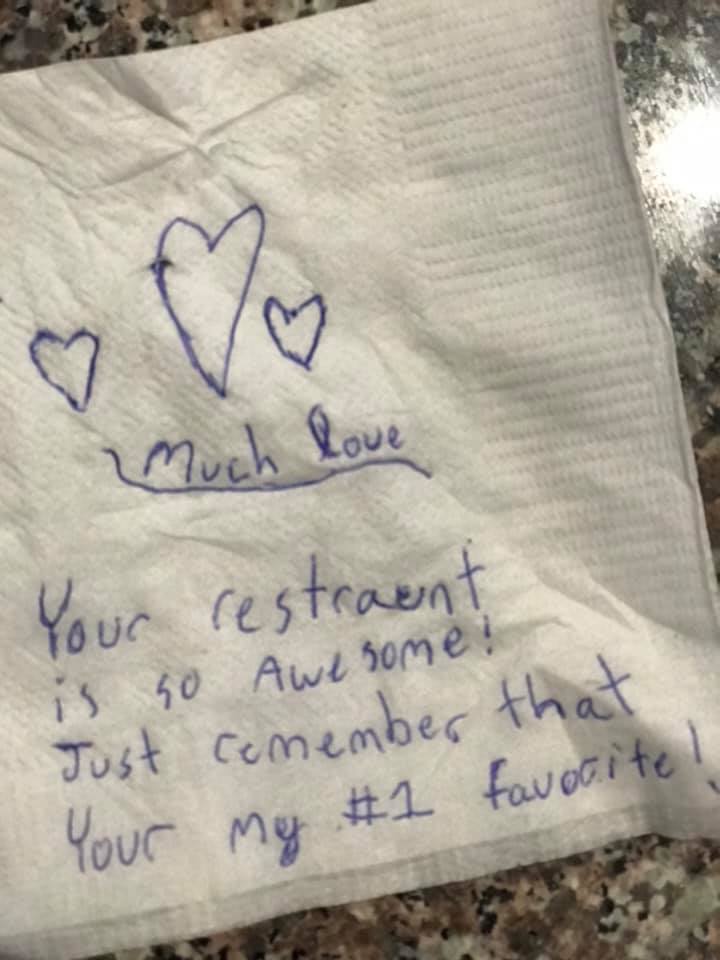 Much love
Your restraent
is so Awesome!
Just remember that
Your my #1 favorite!